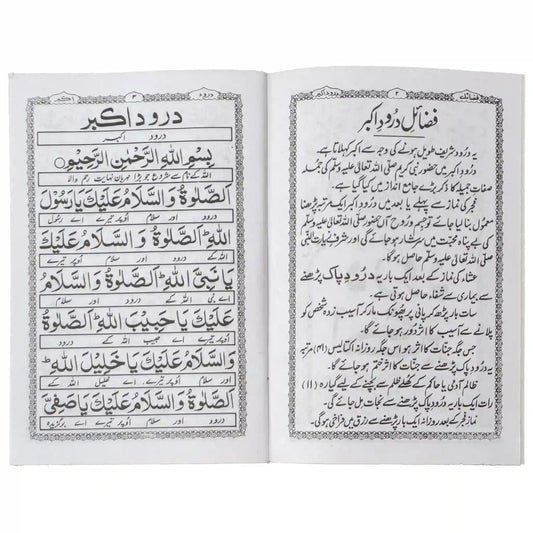 فضائل
۲
درود اکبر
فضائلِ درُودِ اکبر
یہ درُود شریف طویل ہونے کی وجہ سے اکبر کہلاتا ہے۔
درُودِ اکبر میں حضور نبی کریم صلی اللہ تعالیٰ علیہ وسلم کی جُملہ
صفاتِ جمیلہ کا ذکر بڑے جامع انداز میں کیا گیا ہے۔
فجر کی نماز سے پہلے یا بعد میں درُودِ اکبر ایک مرتبہ پڑھنے کا
معمول بنا لیا جائے تو جسم و رُوح آں حضور صلی اللہ تعالیٰ علیہ وسلم
کی بے پناہ محبّت میں سرشار ہو جائے گی اور شرفِ زیارت النبی
صلی اللہ تعالیٰ علیہ وسلم حاصل ہو جائے گا۔
عشاء کی نماز کے بعد ایک بار یہ درُودِ پاک پڑھنے
سے بیماری سے شفاء حاصل ہوتی ہے۔
سات بار پڑھ کر پانی پر پُھونک مار کر آسیب زدہ شخص کو
پلانے سے آسیب کا اثر دُور ہو جائے گا۔
جس جگہ جنات کا اثر ہو اس جگہ روزانہ اکتالیس (۴۱) مرتبہ
یہ درُودِ پاک پڑھنے سے جنات کا اثر ختم ہو جائے گا۔
ظالم آدمی یا حاکم کے دُکھ و ظلم سے بچنے کے لیے گیارہ (۱۱)
رات ایک بار یہ درُودِ پاک پڑھنے سے نجات مل جائے گی۔
نمازِ فجر کے بعد روزانہ ایک بار پڑھنے سے رزق میں فراخی ہو گی۔
درود
۳
اکبر
درود اکبر
درود اکبر
بِسْمِ اللهِ الرَّحْمٰنِ الرَّحِيْمِ
اللہ کے نام سے شروع جو بڑا مہربان نہایت رحم والا
اَلصَّلٰوةُ وَالسَّلَامُ عَلَيْكَ يَا رَسُوْلَ
درود اور سلام اُوپر تیرے اے رسول
اللهِ ؕ اَلصَّلٰوةُ وَالسَّلَامُ عَلَيْكَ
اللہ کے درود اور سلام اُوپر تیرے
يَا نَبِيَّ اللهِ ؕ اَلصَّلٰوةُ وَالسَّلَامُ
اے نبی اللہ کے درود اور سلام
عَلَيْكَ يَا حَبِيْبَ اللهِ ؕ اَلصَّلٰوةُ
اُوپر تیرے اے حبیب اللہ کے درود
وَالسَّلَامُ عَلَيْكَ يَا خَلِيْلَ اللهِ ؕ
اور سلام اُوپر تیرے، اے خلیل اللہ کے
اَلصَّلٰوةُ وَالسَّلَامُ عَلَيْكَ يَا صَفِيَّ
درود اور سلام اُوپر تیرے اے برگزیدہ